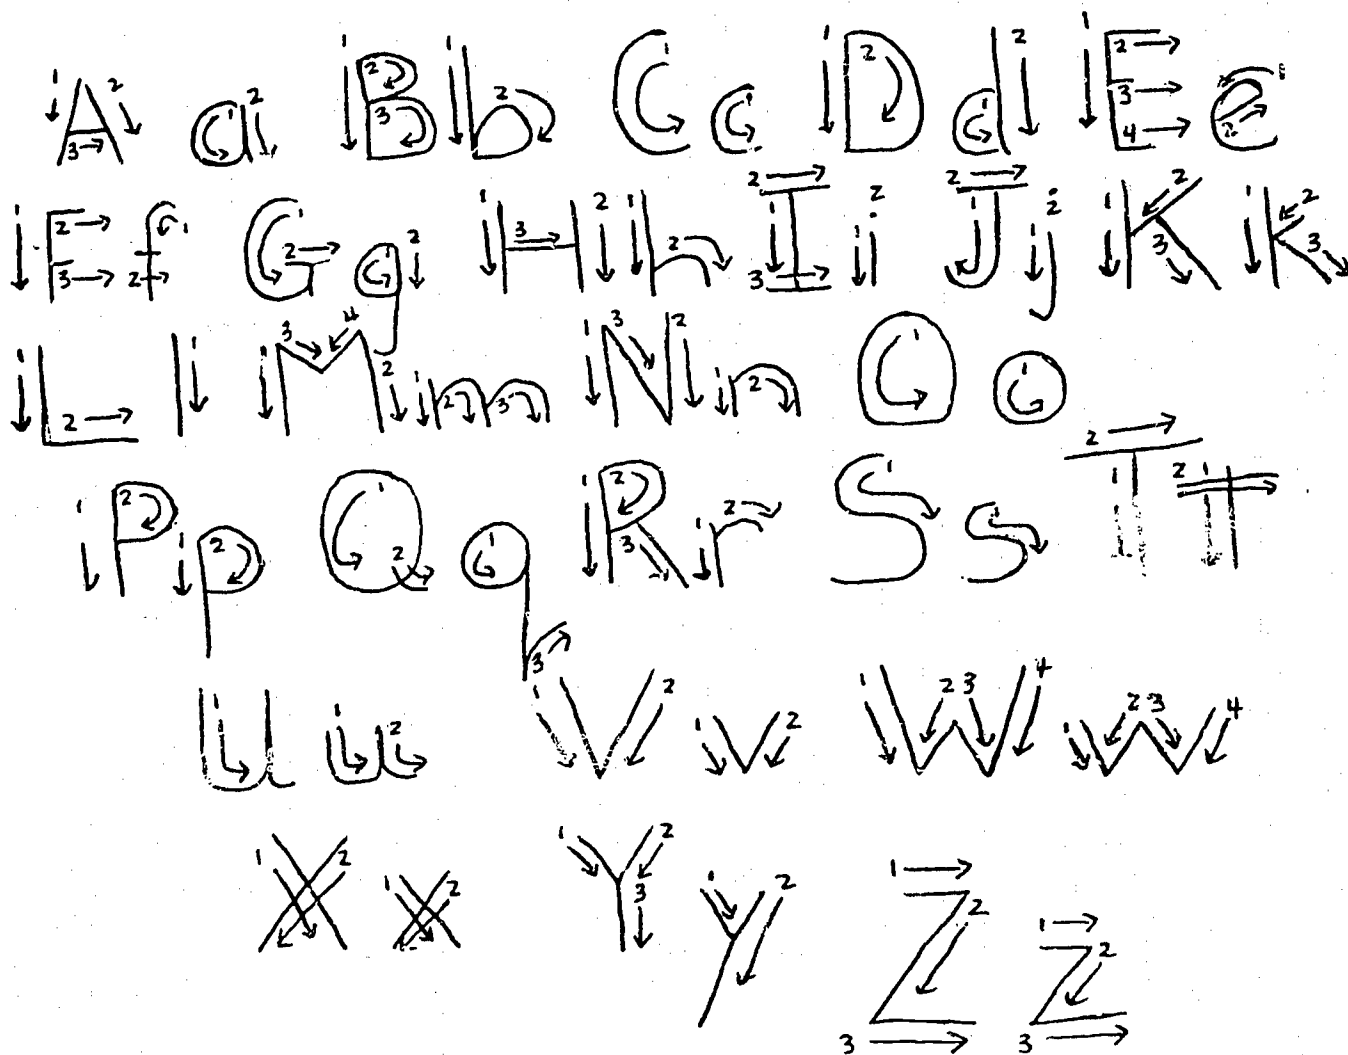 A a B b C c D d E e
F f G g H h I i J j K k
L l M m N n O o
P p Q q R r S s T t
U u V v W w
X x Y y Z z